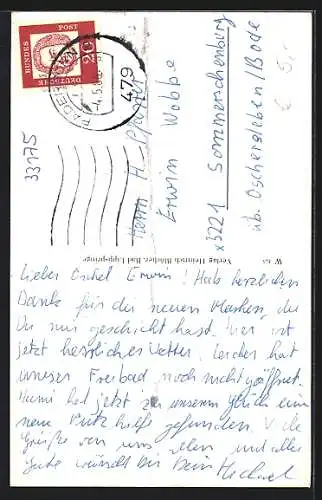 DEUTSCHE
BUNDES
POST
20
479
33175
Herrn H.
Erwin Wobbe
x3221 Sommerschenburg
üb. Oschersleben/Bode
W
Verlag Heinrich Blöcher, Bad Lippspringe
Lieber Onkel Erwin! Hab herzlichen
Dank für die neuen Marken, die
Du mir geschickt hast. Hier ist
jetzt herrliches Wetter. Leider hat
unser Freibad noch nicht geöffnet.
Mami hat jetzt zu unserem Glück eine
neue Putzhilfe gefunden. Viele
Grüße von uns allen und alles
Gute wünscht Dir Dein Michael